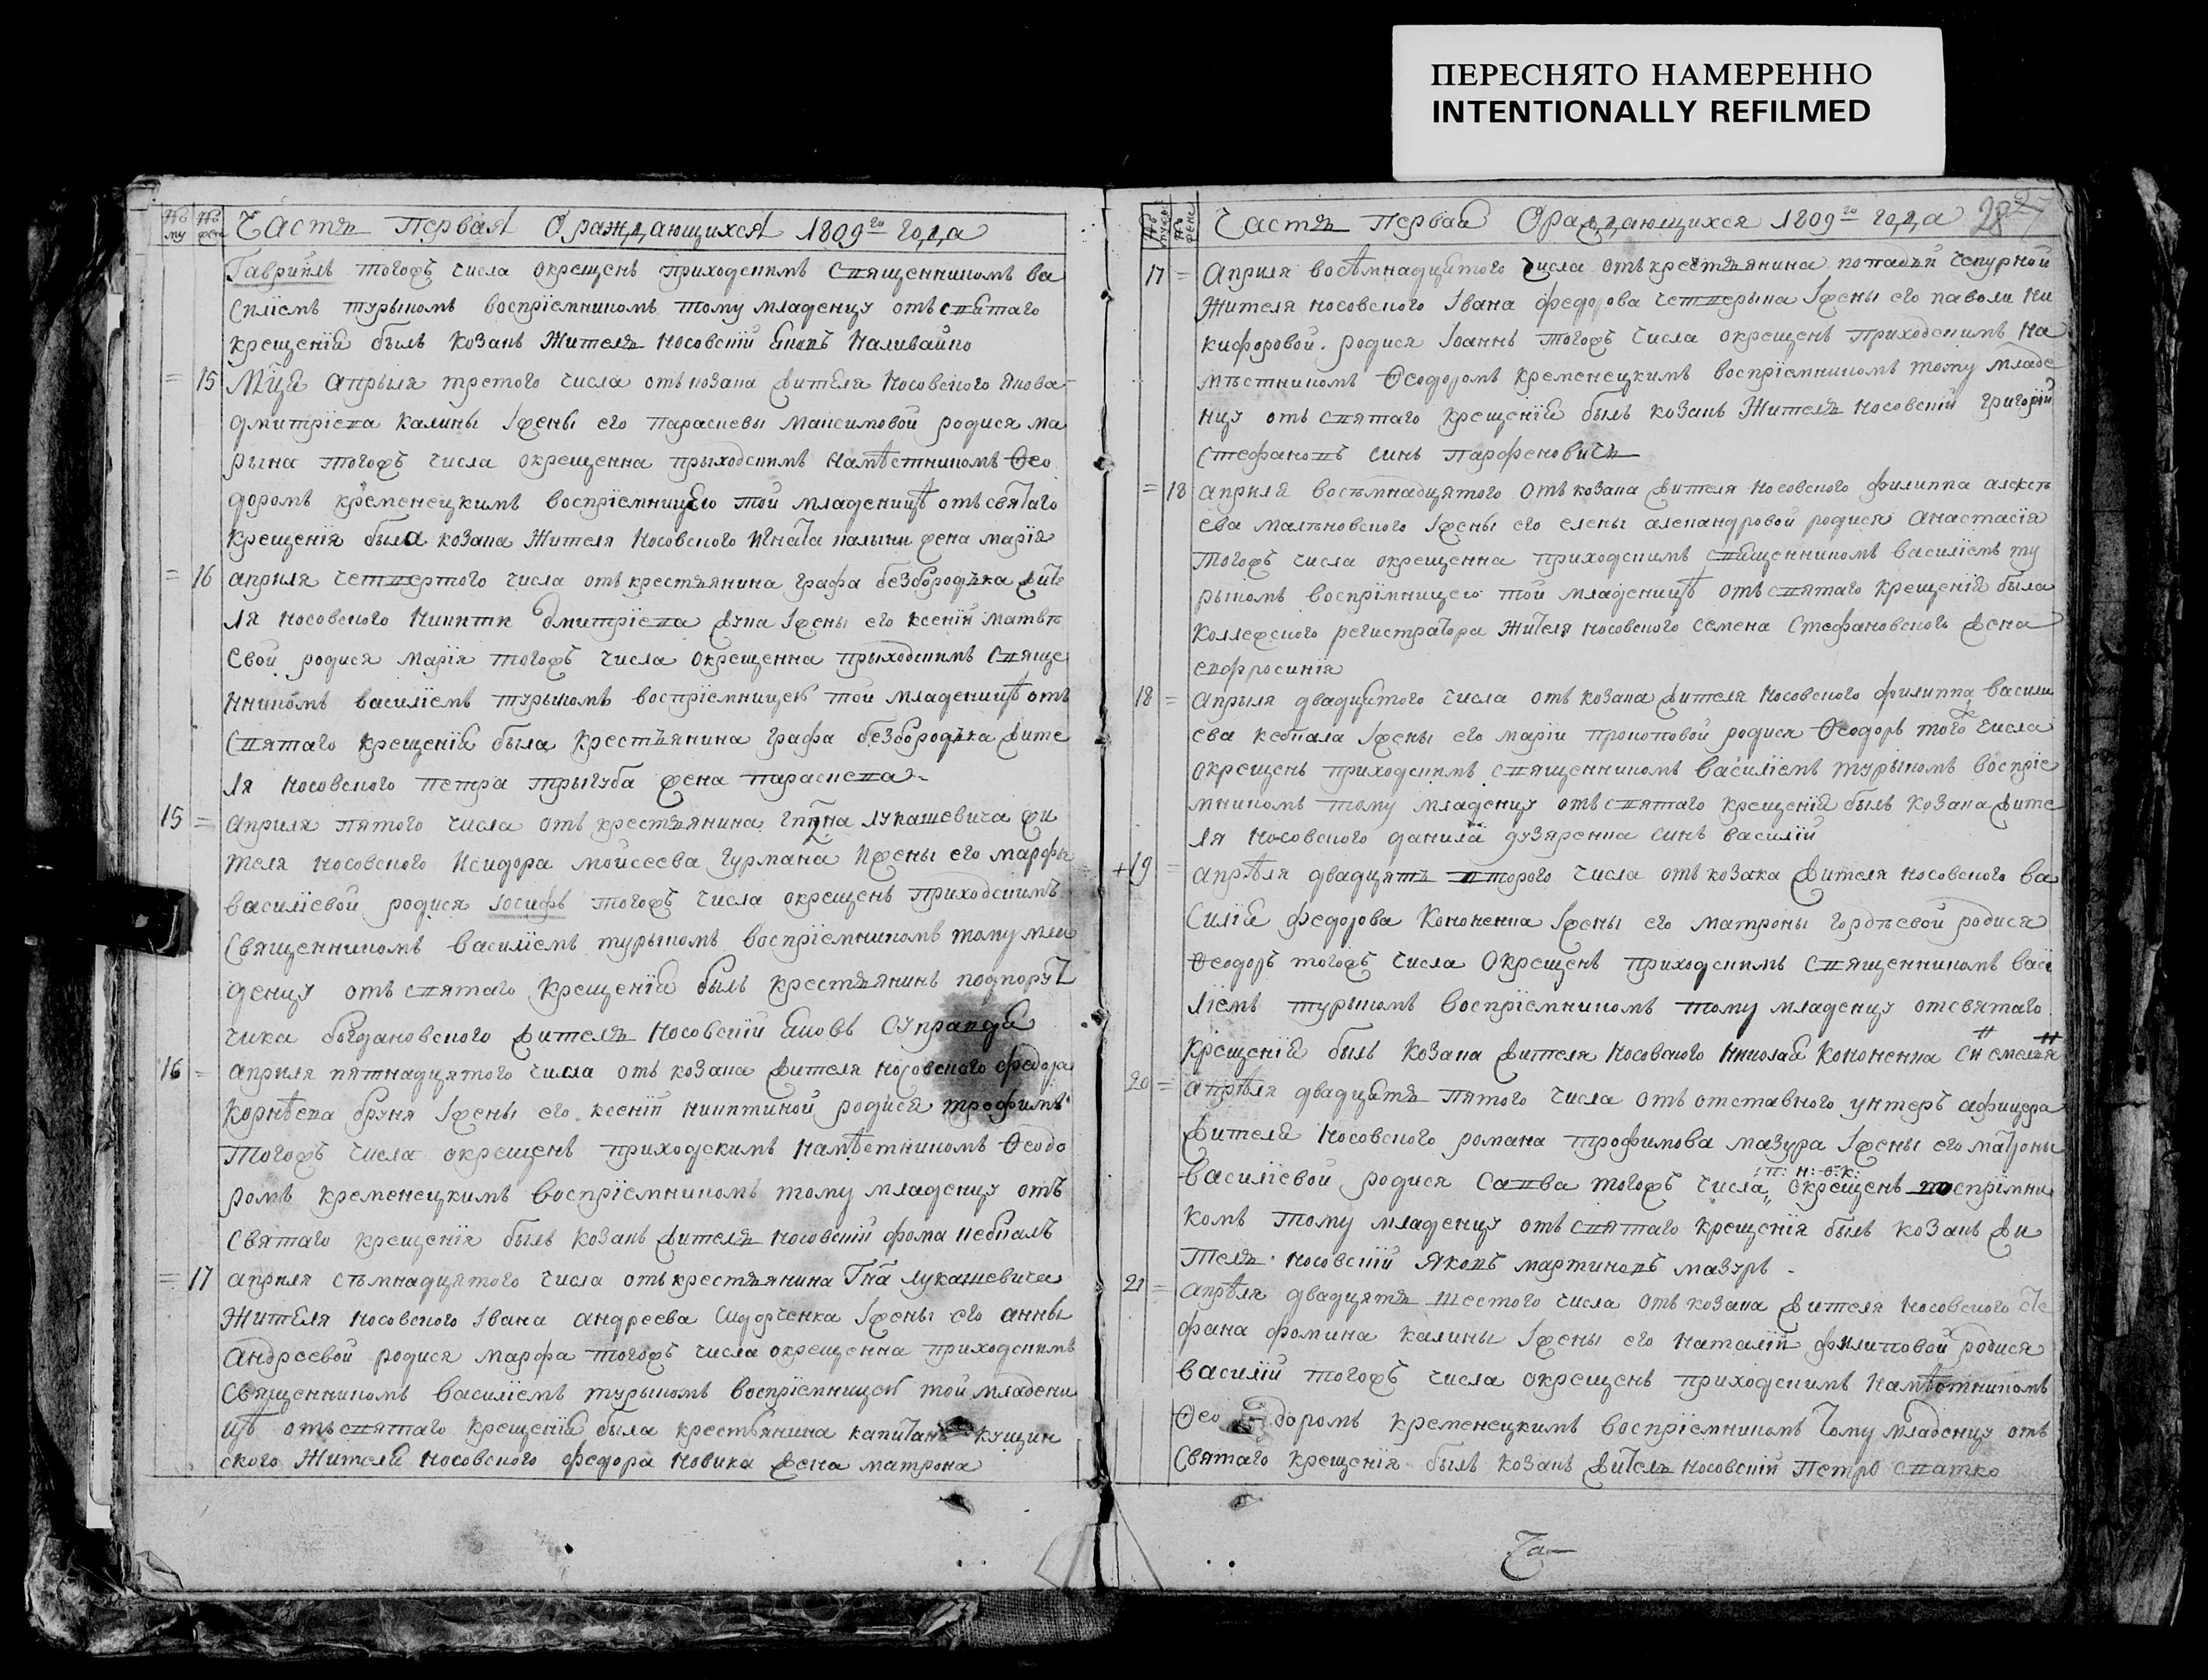 ПЕРЕСНЯТО НАМЕРЕННО
INTENTIONALLY REFILMED
Часть Первая О раждающихся 1809го года
Гавриилъ тогожъ числа окрещенъ приходскимъ священникомъ Ва
силіемъ турыкомъ воспріемникомъ тому младенцу отъ святаго
крещенія былъ козакъ Житель Носовскій Яковъ Наливайко
= 15 Мца Априля третого числа отъ козака жителя Носовского Якова
дмитріева Калины Іжены его Параскевы Максимовой родися Ма
рына тогожъ числа окрещенна прыходскимъ Намѣстникомъ Ѳео
доромъ кременецкимъ воспріемницею той младеницѣ отъ святаго
крещенія была козака Жителя Носовского Игната калыни жена Марія
= 16 априля четвертого числа отъ крестьянина графа безбородька жите
ля Носовского Никиты Дмитріева жука Іжены его Ксеніи Матвѣ
евой родися Марія тогожъ числа окрещенна прыходскимъ свяще
нникомъ василіемъ турыкомъ воспріемницею той младеницѣ отъ
святаго крещенія была крестьянина графа безбородька жите
ля Носовского петра трыгуба жена параскева
15 = априля пятого числа отъ крестьянина лукашевича жи
теля Носовского Исидора Мойсеева Гурмана Ижены его марфы
василіевой родися Іосифъ тогожъ числа окрещенъ приходскимъ
священникомъ василіемъ турыкомъ воспріемникомъ тому мла
денцу отъ святаго крещенія былъ крестьянинъ подпоруч
чика богдановского житель Носовскій Яковъ Супрапде
16 = априля пятнадцятого числа отъ козака жителя Носовского федора
корнѣева бруня Іжены его ксеніи никитиной родися трофимъ
тогожъ числа окрещенъ приходскимъ Намѣстникомъ Ѳеодо
ромъ кременецкимъ воспріемникомъ тому младенцу отъ
святаго крещенія былъ козакъ житель Носовскій фома кебкалъ
= 17 априля сѣмнадцятого числа отъ крестьянина Гна лукашевича
Жителя Носовского Івана андреева Сидорченка Іжены его анны
Андреевой родися марфа тогожъ числа окрещенна приходскимъ
священникомъ василіемъ турыкомъ воспріемницею той младени
цѣ отъ святаго крещенія была крестьянина капитана кущин
ского Жителя Носовского федора Новика жена матрона
Часть Первая О раждающихся 1809го года 28
17 = Априля восѣмнадцятого числа отъ крестьянина чепурной
Жителя носовского Івана федорова четверыка Іжены его павлы Ни
кифоровой родися Іоаннъ тогожъ числа окрещенъ приходскимъ На
мѣстникомъ Ѳеодоромъ кременецкимъ воспріемникомъ тому младе
нцу отъ святаго крещенія былъ козакъ Житель Носовскій григорій
стефановъ синъ парфеновичъ
= 18 априля восѣмнадцятого отъ козака жителя носовского филиппа алексѣ
ева Малѣновского Іжены его елены алехандровой родися Анастасія
тогожъ числа окрещенна приходскимъ священникомъ василіемъ ту
рыкомъ воспрімницею той младеницѣ отъ святаго крещенія была
коллежского регистратора Жителя носовского семена Стефановского жена
евфросинія
18 = априля двадцятого числа отъ козака жителя носовского филиппа васили
ева кебкала Іжены его маріи прокоповой родися Ѳеодоръ тогож числа
окрещенъ приходскимъ священникомъ василіемъ турыкомъ воспріе
мникомъ тому младенцу отъ святаго крещенія былъ козака жите
ля Носовского данила дузяренка синъ василій
+ 19 = апрѣля двадцять второго числа отъ козака жителя носовского ва
силія федорова Кононенка Іжены его матроны гордѣевой родися
Ѳеодоръ тогожъ числа Окрещенъ приходскимъ священникомъ васи
ліемъ турыкомъ воспріемникомъ тому младенцу отсвятаго
крещенія былъ козака жителя Носовского Николая Кононенка снъ емелія
20 = апрѣля двадцять пятого числа отъ отставного унтеръ афицера
жителя Носовского романа трофимова мазура Іжены его матроны
василіевой родися Савва тогожъ числа :п: н: ѳ: к: окрещенъ воспрімни
комъ тому младенцу отъ святаго крещенія былъ козакъ жи
тель Носовскій Яковъ мартиновъ мазуръ
21 = апрѣля двадцять шестого числа отъ козака жителя Носовского сте
фана фомина калины Іжены его Наталіи филиповой родися
василій тогожъ числа окрещенъ приходскимъ Намѣстникомъ
Ѳео доромъ кременецкимъ воспріемникомъ тому младенцу отъ
святаго крещенія былъ козакъ житель носовскій Петро сватко
Ча